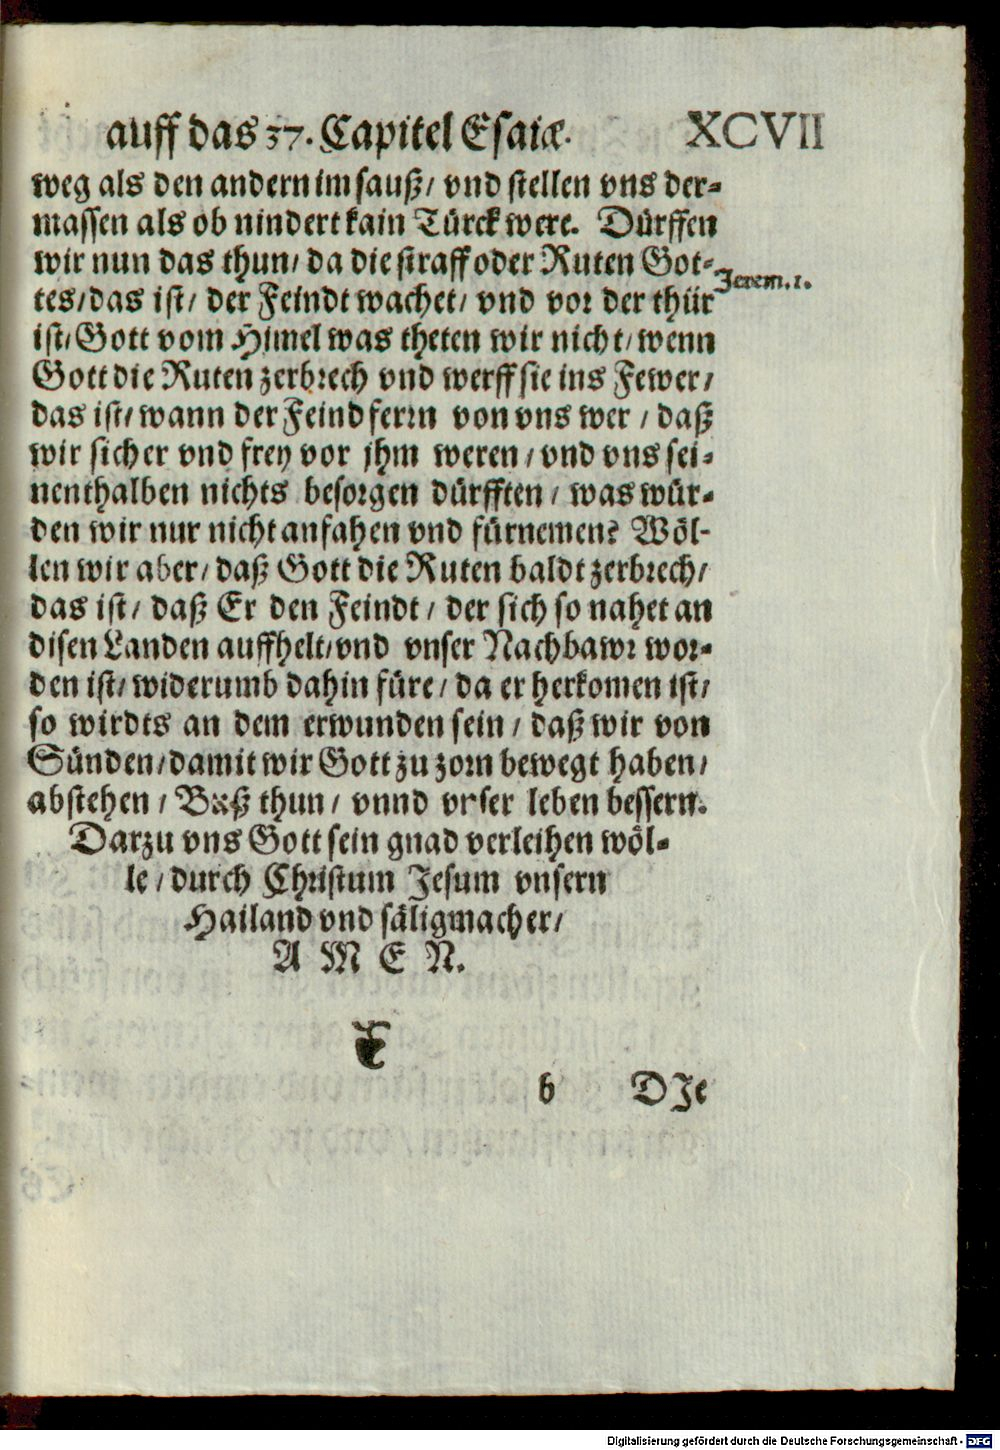 auff das 37. Capitel Esaiæ. XCVII
weg als den andern im sauß/ vnd stellen vns der-
massen als ob nindert kain Türck were. Dürffen
wir nun das thun/ da die straff oder Ruten Got-
Jerem. 1.
tes/ das ist/ der Feindt wachet/ vnd vor der thür
ist/ Gott vom Himel was theten wir nicht/ wenn
Gott die Ruten zerbrech vnd werff sie ins Fewer/
das ist/ wann der Feind ferrn von vns wer/ daß
wir sicher vnd frey vor jhm weren/ vnd vns sei-
nenthalben nichts besorgen dürfften/ was wür-
den wir nur nicht anfahen vnd fürnemen? Wöl-
len wir aber/ daß Gott die Ruten baldt zerbrech/
das ist/ daß Er den Feindt/ der sich so nahet an
disen Landen auffhelt/ vnd vnser Nachbawr wor-
den ist/ widerumb dahin füre/ da er herkomen ist/
so wirdts an dem erwunden sein/ daß wir von
Sünden/ damit wir Gott zu zorn bewegt haben/
abstehen/ Buß thun/ vnnd vnser leben bessern.
Darzu vns Gott sein gnad verleihen wöl-
le/ durch Christum Jesum vnsern
Hailand vnd säligmacher/
A M E N.
b DJe
Digitalisierung gefördert durch die Deutsche Forschungsgemeinschaft - DFG